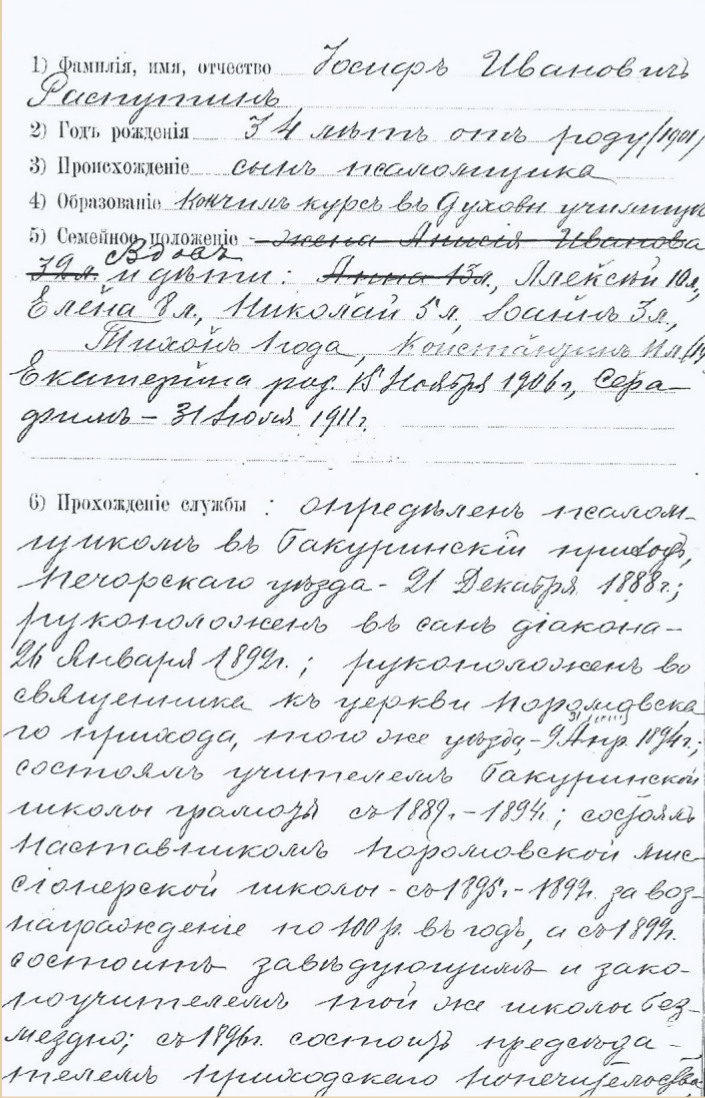 1) Фамилія, имя, отчество Іосифъ Ивановичъ
Распутинъ
2) Годъ рожденія 34 лѣтъ отъ роду /1901/
3) Происхожденіе сынъ псаломщика
4) Образованіе Кончилъ курсъ въ Духовн училищѣ
5) Семейное положеніе - жена Анисія Иванова
Вдовъ
32 л. и дѣти: Анна 13 л., Алексѣй 10 л.,
Елена 8 л., Николай 5 л., Іоаннъ 3 л.,
Тихонъ 1 года, Константинъ
Екатерина род. 15 Ноября 1906 г., Сера-
фимъ - 31 Іюля 1911 г.
6) Прохожденіе службы : опредѣленъ псалом-
щикомъ въ Бакуринскій приходъ,
Печорскаго уѣзда - 21 Декабря 1888 г.;
рукоположенъ въ санъ діакона -
26 Января 1892 г.; рукоположенъ во
священника къ церкви
го прихода, того же уѣзда, - 9 Апр. 1894 г.;
состоялъ учителемъ Бакуринской
школы грамоты съ 1889. - 1894.; состоялъ
наставникомъ мис-
сіонерской школы - съ 1895. - 1899. за воз-
награжденіе по 100 р. въ годъ, а съ 1899.
состоитъ завѣдующимъ и зако-
ноучителемъ той же школы без-
мездно; съ 1896 г. состоитъ предсѣда-
телемъ приходскаго попечительства